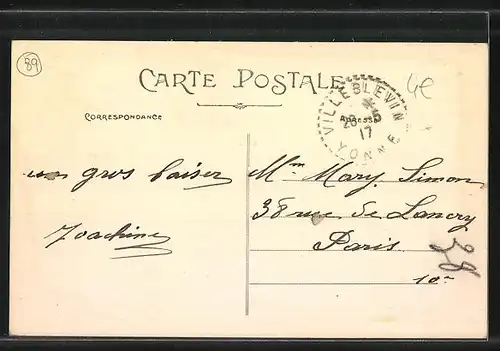 89
CARTE POSTALE
4€
VILLEBLEVIN
26-5
17
YONNE
CORRESPONDANCE
ADRESSE
un gros baiser
Joachine
Mme Mary. Simon
38 rue de Lancry
Paris
38
10e